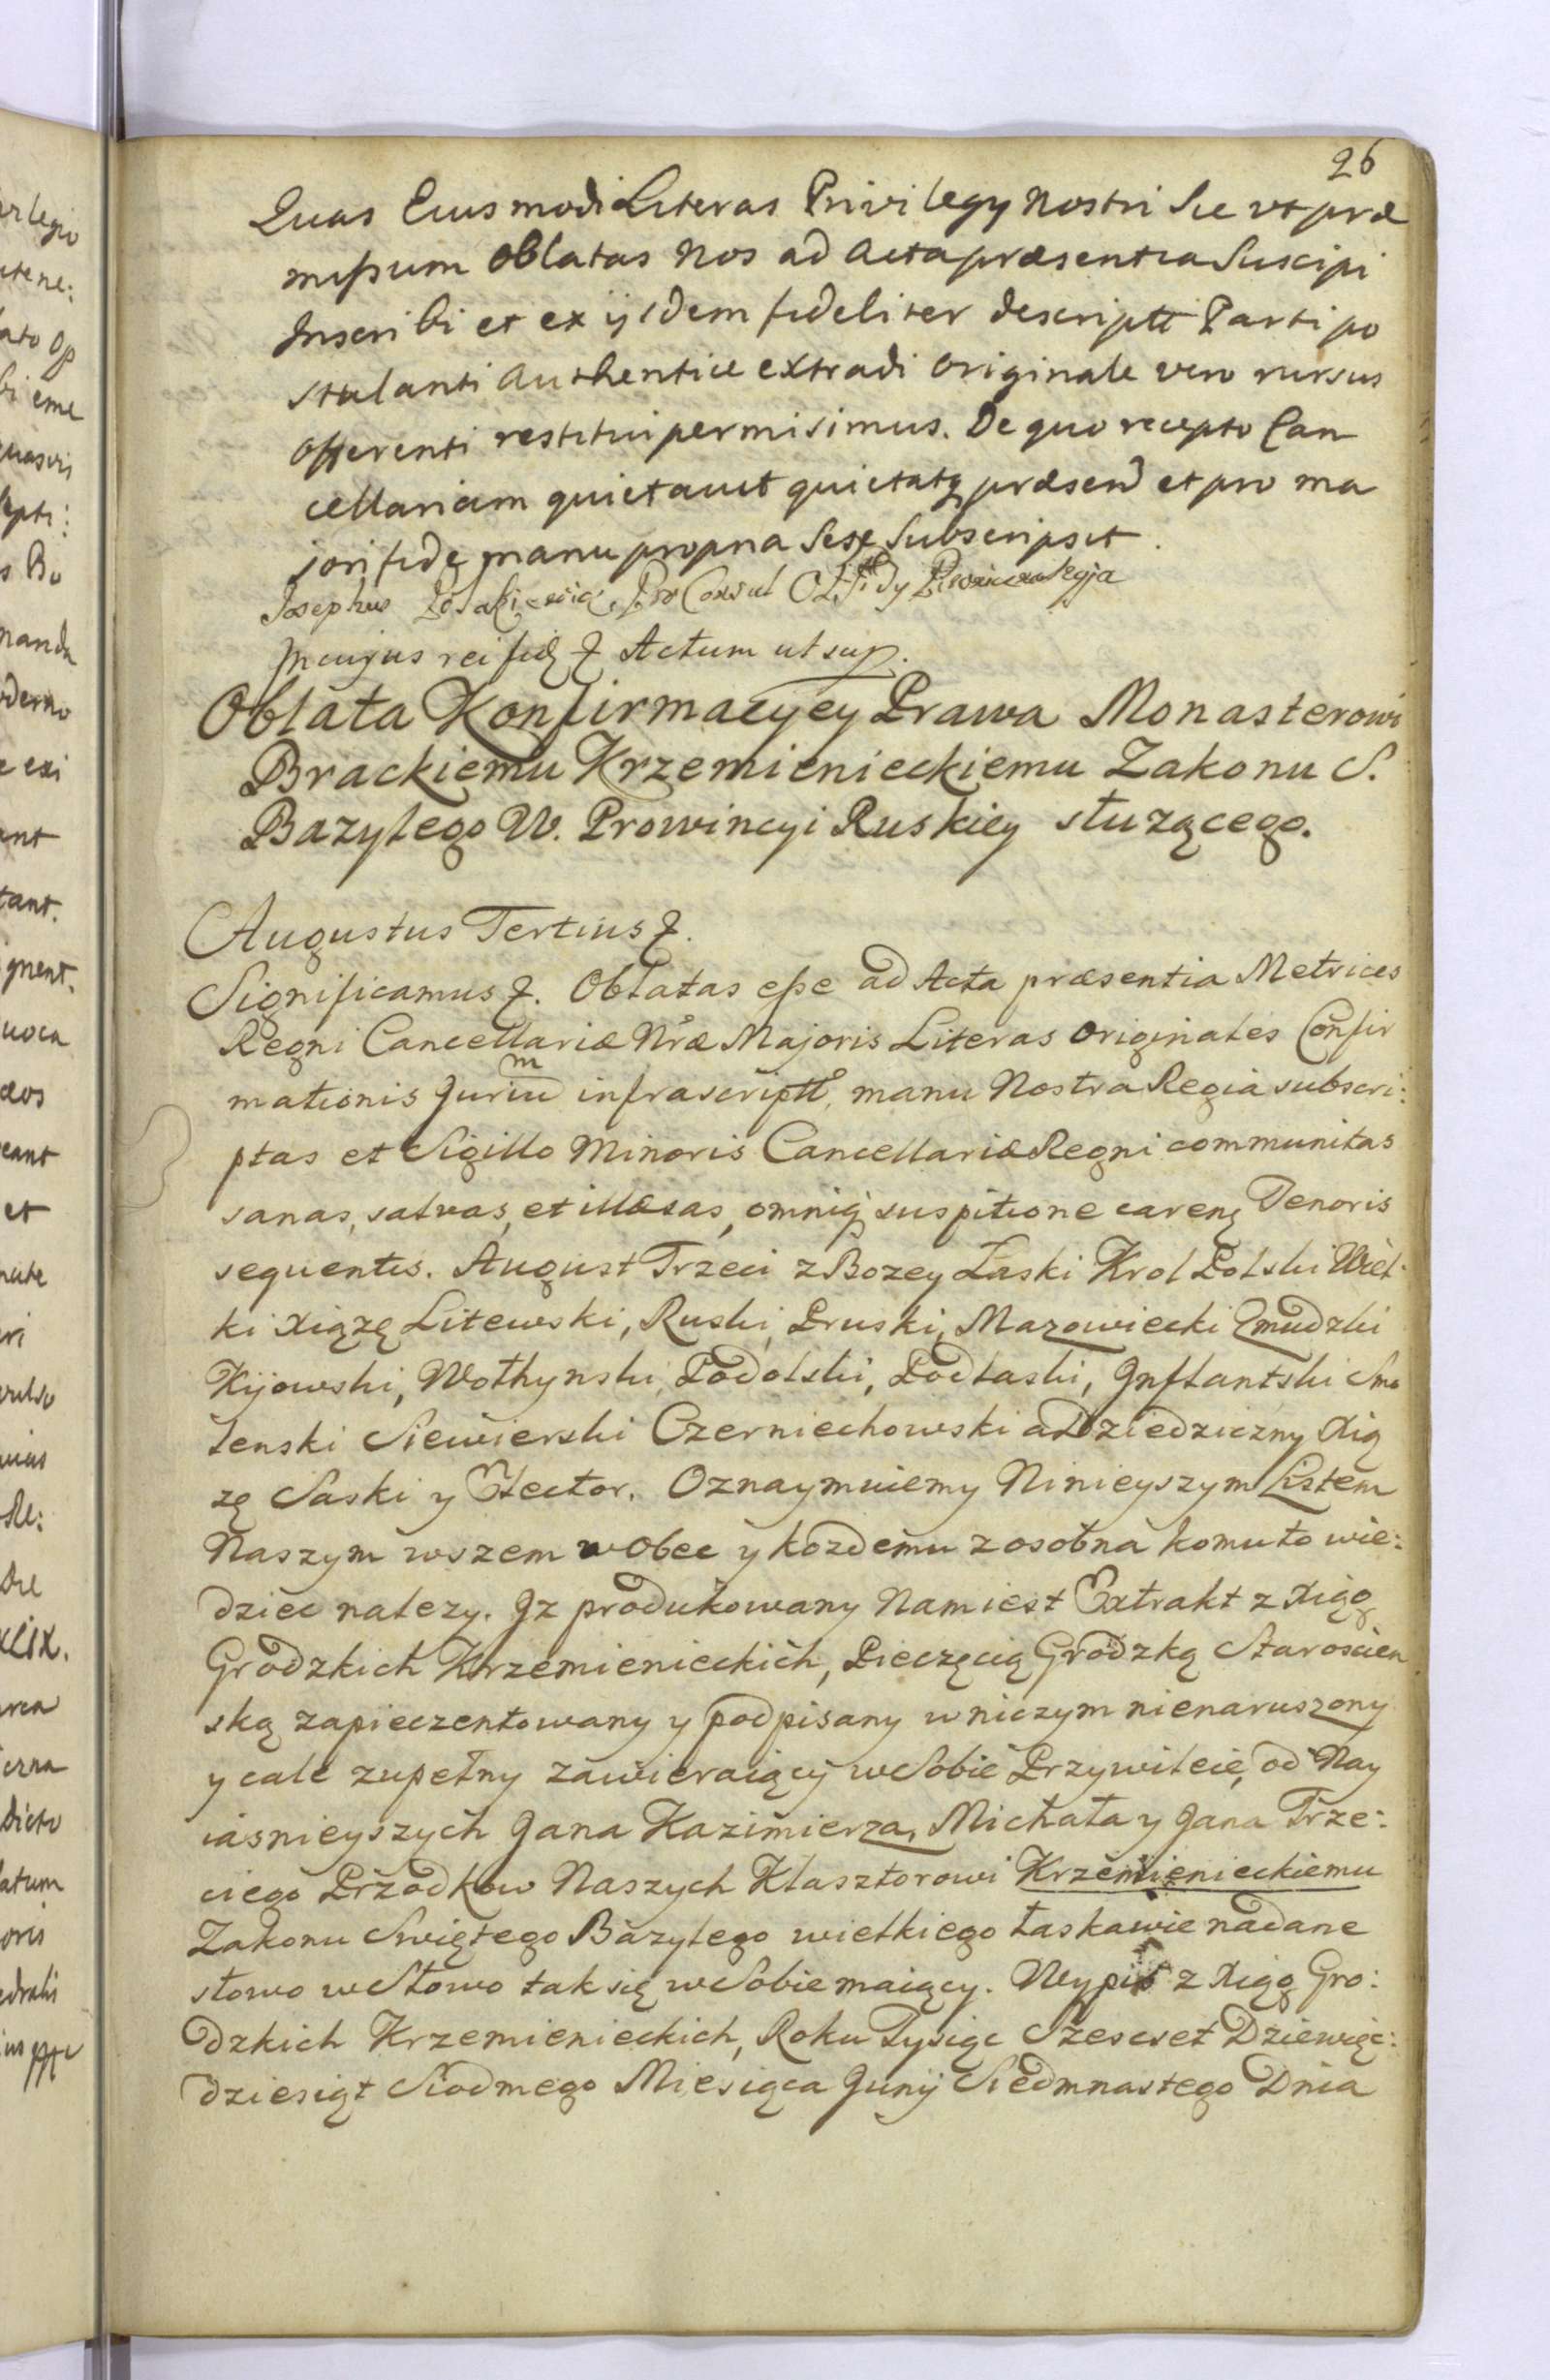 26
Quas Eiusmodi Literas Privilegy Nostri Sic ut præ
mißum Oblatas Nos ad Acta præsentia Suscipi
Inscribi et ex ijsdem fideliter descriptt Parti po
stulanti Authentice extradi Originale vero rursus
Offerenti restitui permisimus. De quo recepto Can
cellariam quietavit quietatq præsend et pro ma
jori fide manu propria Sese Subscripsit.
Josephus Pro Consul
In cujus rei fidę &. Actum ut sup.
Oblata Konfirmacyey Prawa Monasterowi
Brackiemu Krzemienieckiemu Zakonu S.
Bazylego W. Prowincyi Ruskiey służącego.
Augustus Tertius &.
Significamus &. Oblatas eße ad Acta præsentia Metrices
Regni Cancellariæ Nræ Majoris Literas Originales Confir
mationis Jurium infrascriptt, manu Nostra Regia subscri:
ptas et Sigillo Minoris Cancellariæ Regni communitas
sanas, salvas, et illæsas, omniq suspitione careñ Tenoris
sequentis. August Trzeci z Bozey Łaski Krol Polski Wiel:
ki Xiążę Litewski, Ruski, Pruski, Mazowiecki Zmudzki
Kijowski, Wołhynski, Podolski, Podlaski, Inflantski Smo
lenski Siewierski Czerniechowski a Dziedziczny Xią
zę Saski y Elector. Oznaymuiemy Ninieyszym Listem
Naszym wszem wobec y kozdemu zosobna komu to wie:
dziec nalezy. Iz produkowany Nam iest Extrakt z Xiąg
Grodzkich Krzemienieckich, Pieczęcią Grodzką Staroscien
ską zapieczentowany y podpisany w niczym nienaruszony
y cale zupełny zawieraiący w Sobie Przywileie, od Nay
iasnieyszych Jana Kazimierza, Michała y Jana Trze:
ciego Przodkow Naszych Klasztorowi Krzemienieckiemu
Zakonu Swiętego Bazylego wielkiego łaskawie nadane
słowo w Słowo tak się w Sobie maiący. Wypis z Xiąg Gro:
dzkich Krzemienieckich, Roku Tysiąc Szescset Dziewięc:
dziesiąt Siodmego Miesiąca Junij Siedmnastego Dnia